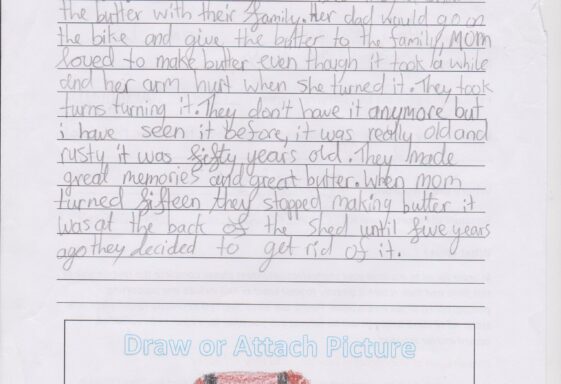 the butter with their family. Her dad would go on
the bike and give the butter to the family, Mom
loved to make butter even though it took a while
and her arm hurt when she turned it. They took
turns turning it. They don't have it anymore but
i have seen it before, it was really old and
rusty it was fifty years old. They made
great memories and great butter. When mom
turned fifteen they stopped making butter it
was at the back of the shed until five years
ago they decided to get rid of it.
Draw or Attach Picture